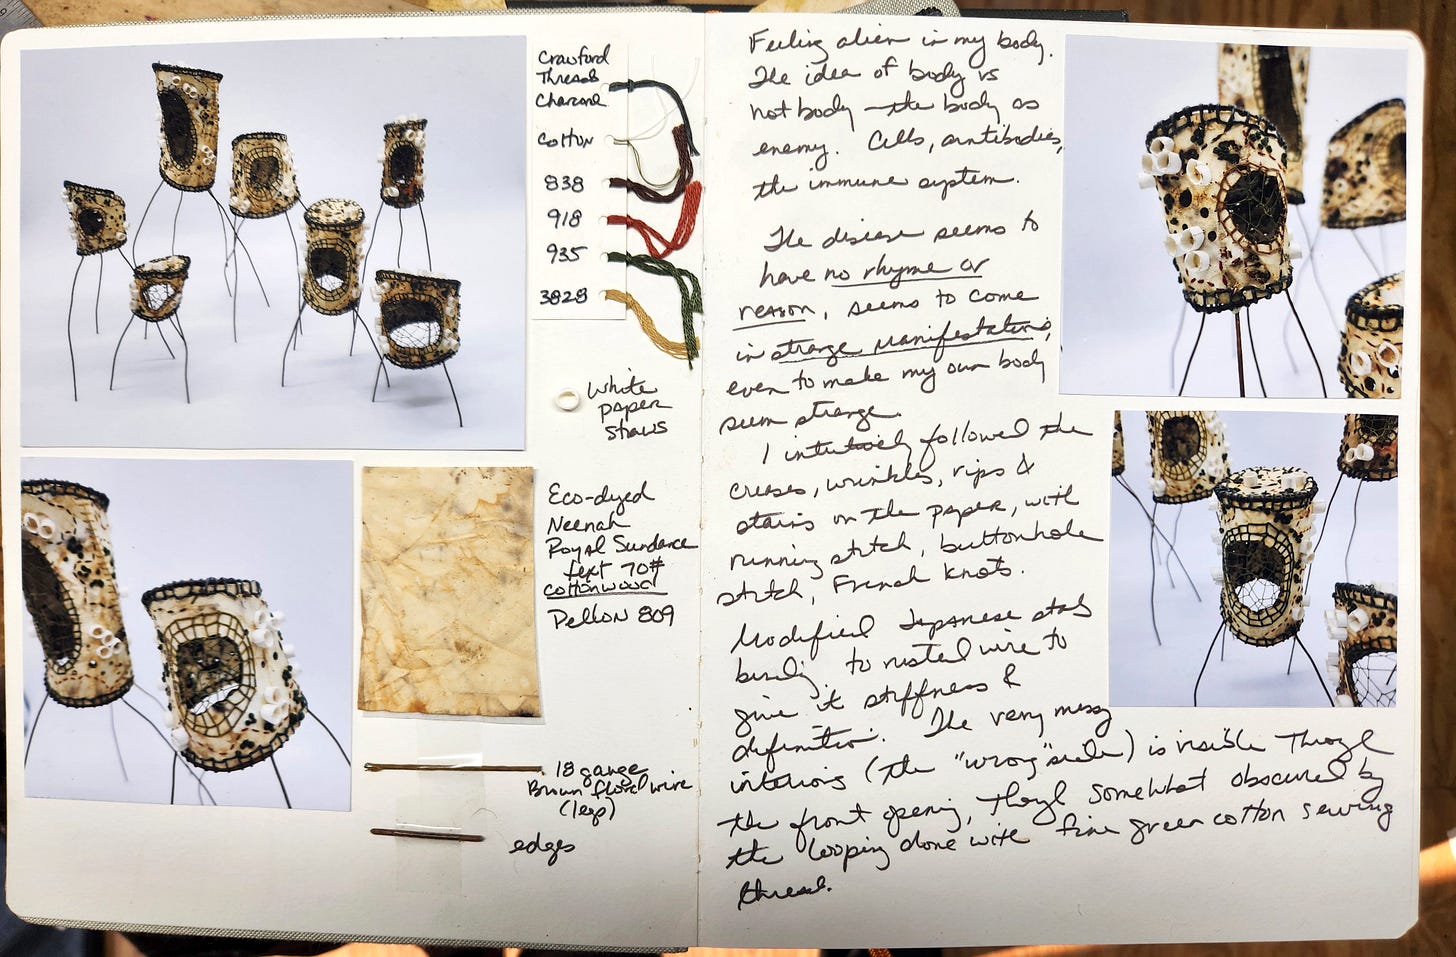 Crawford
Threads
Charcoal
Cotton
838
918
935
3828
White
paper
straws
Eco-dyed
Neenah
Royal Sundance
text 70#
cottonwood
Pellon 809
18 gauge
Brown floral wire
(legs)
edges
Feeling alien in my body.
The idea of body vs
not body – the body as
enemy. Cells, antibodies,
the immune system.
The disease seems to
have no rhyme or
reason, seems to come
in strange manifestations,
even to make my own body
seem strange.
I intuitively followed the
creases, wrinkles, rips &
stains on the paper, with
running stitch, buttonhole
stitch, French knots.
Modified Japanese stab
binding to rusted wire to
give it stiffness &
definition. The very messy
interiors (the "wrong" side) is visible through
the front opening, though somewhat obscured by
the looping done with fine green cotton sewing
thread.